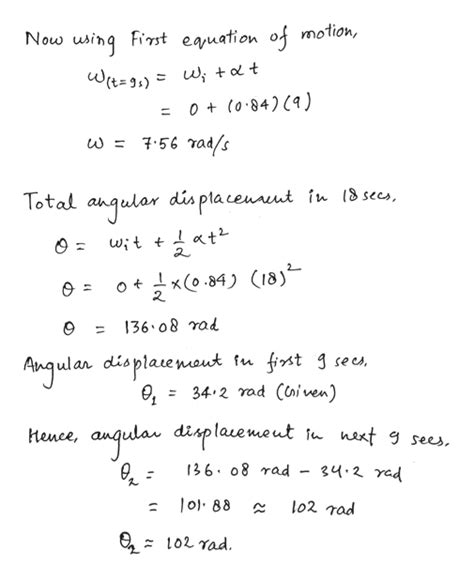 Now using First equation of motion,
ω(t=9s) = ωi + αt
= 0 + (0.84)(9)
ω = 7.56 rad/s
Total angular displacement in 18 secs,
θ = ωit + 1/2 αt²
θ = 0 + 1/2 × (0.84) (18)²
θ = 136.08 rad
Angular displacement in first 9 secs,
θ₁ = 34.2 rad (Given)
Hence, angular displacement in next 9 secs,
θ₂ = 136.08 rad - 34.2 rad
= 101.88 ≈ 102 rad
θ₂ ≈ 102 rad.